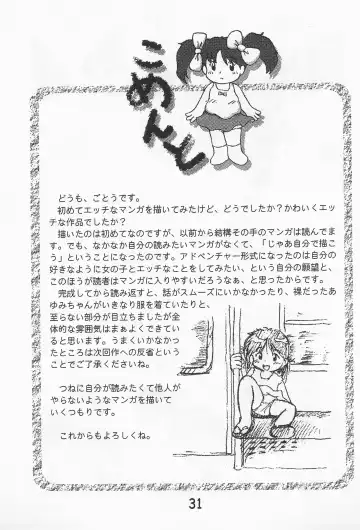 こめんと
どうも、ごとうです。
初めてエッチなマンガを描いてみたけど、どうでしたか？かわいくエッ
チな作品でしたか？
描いたのは初めてなのですが、以前から結構その手のマンガは読んでま
す。でも、なかなか自分の読みたいマンガがなくて、「じゃあ自分で描こ
う」ということになったのです。アドベンチャー形式になったのは自分の
好きなように女の子とエッチなことをしてみたい、という自分の願望と、
このほうが読者はマンガに入りやすいだろうなぁ、と思ったからです。
完成してから読み返すと、話がスムーズにいかなかったり、裸だったあ
ゆみちゃんがいきなり服を着ていたりと、
至らない部分が目立ちましたが全
体的な雰囲気はまぁよくできている
と思います。うまくいかなかっ
たところは次回作への反省という
ことでご了承くださいね。
つねに自分が読みたくて他人が
やらないようなマンガを描いて
いくつもりです。
これからもよろしくね。
31